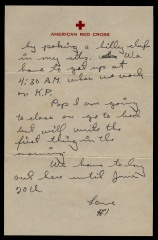 AMERICAN RED CROSS
by poking a billy club
in my ribs. We
have to get up at
4:30 A.M. when we work
on K.P.
Pop I am going
to close an go to bed
but will write the
first thing in the
morning.
We have to stay
out here until June
20th
Love